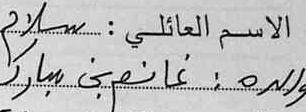 الاسم العائلي : سلام
والده : غانم بن مبارك